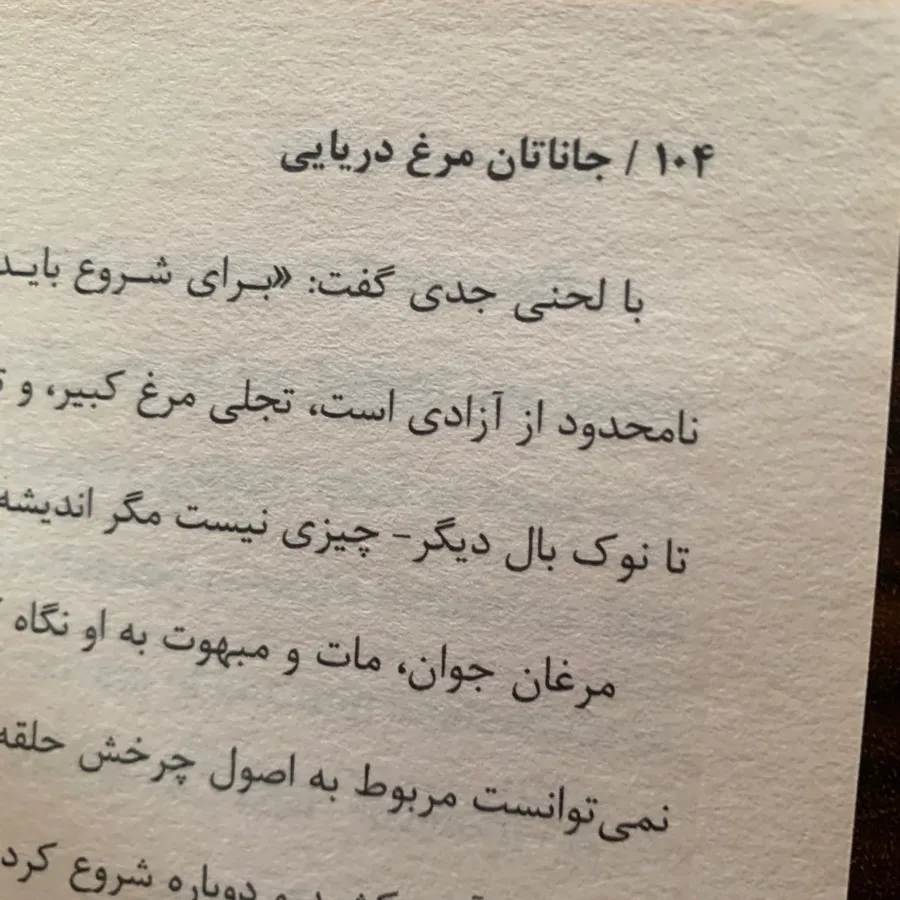 ۱۰۴ / جاناتان مرغ دریایی
با لحنی جدی گفت: «برای شروع باید
نامحدود از آزادی است، تجلی مرغ کبیر، و
تا نوک بال دیگر- چیزی نیست مگر اندیشه
مرغان جوان، مات و مبهوت به او نگاه
نمی‌توانست مربوط به اصول چرخش حلقه
و دوباره شروع کرد